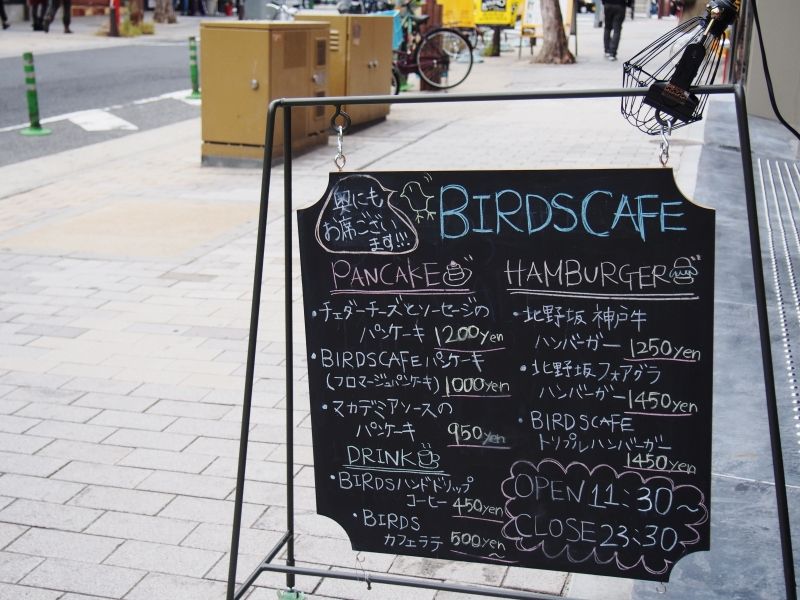 奥にも
お席ござい
ます!!!
BIRDSCAFE
PANCAKE
・チェダーチーズとソーセージの
パンケーキ 1200yen
・BIRDSCAFEパンケーキ
(フロマージュパンケーキ) 1000yen
・マカデミアソースの
パンケーキ 950yen
DRINK
・BIRDSハンドドリップ
コーヒー 450yen
・BIRDS
カフェラテ 500yen~
HAMBURGER
・北野坂 神戸牛
ハンバーガー 1250yen
・北野坂フォアグラ
ハンバーガー 1450yen
・BIRDSCAFE
トリプルハンバーガー
1450yen
OPEN 11:30~
CLOSE 23:30